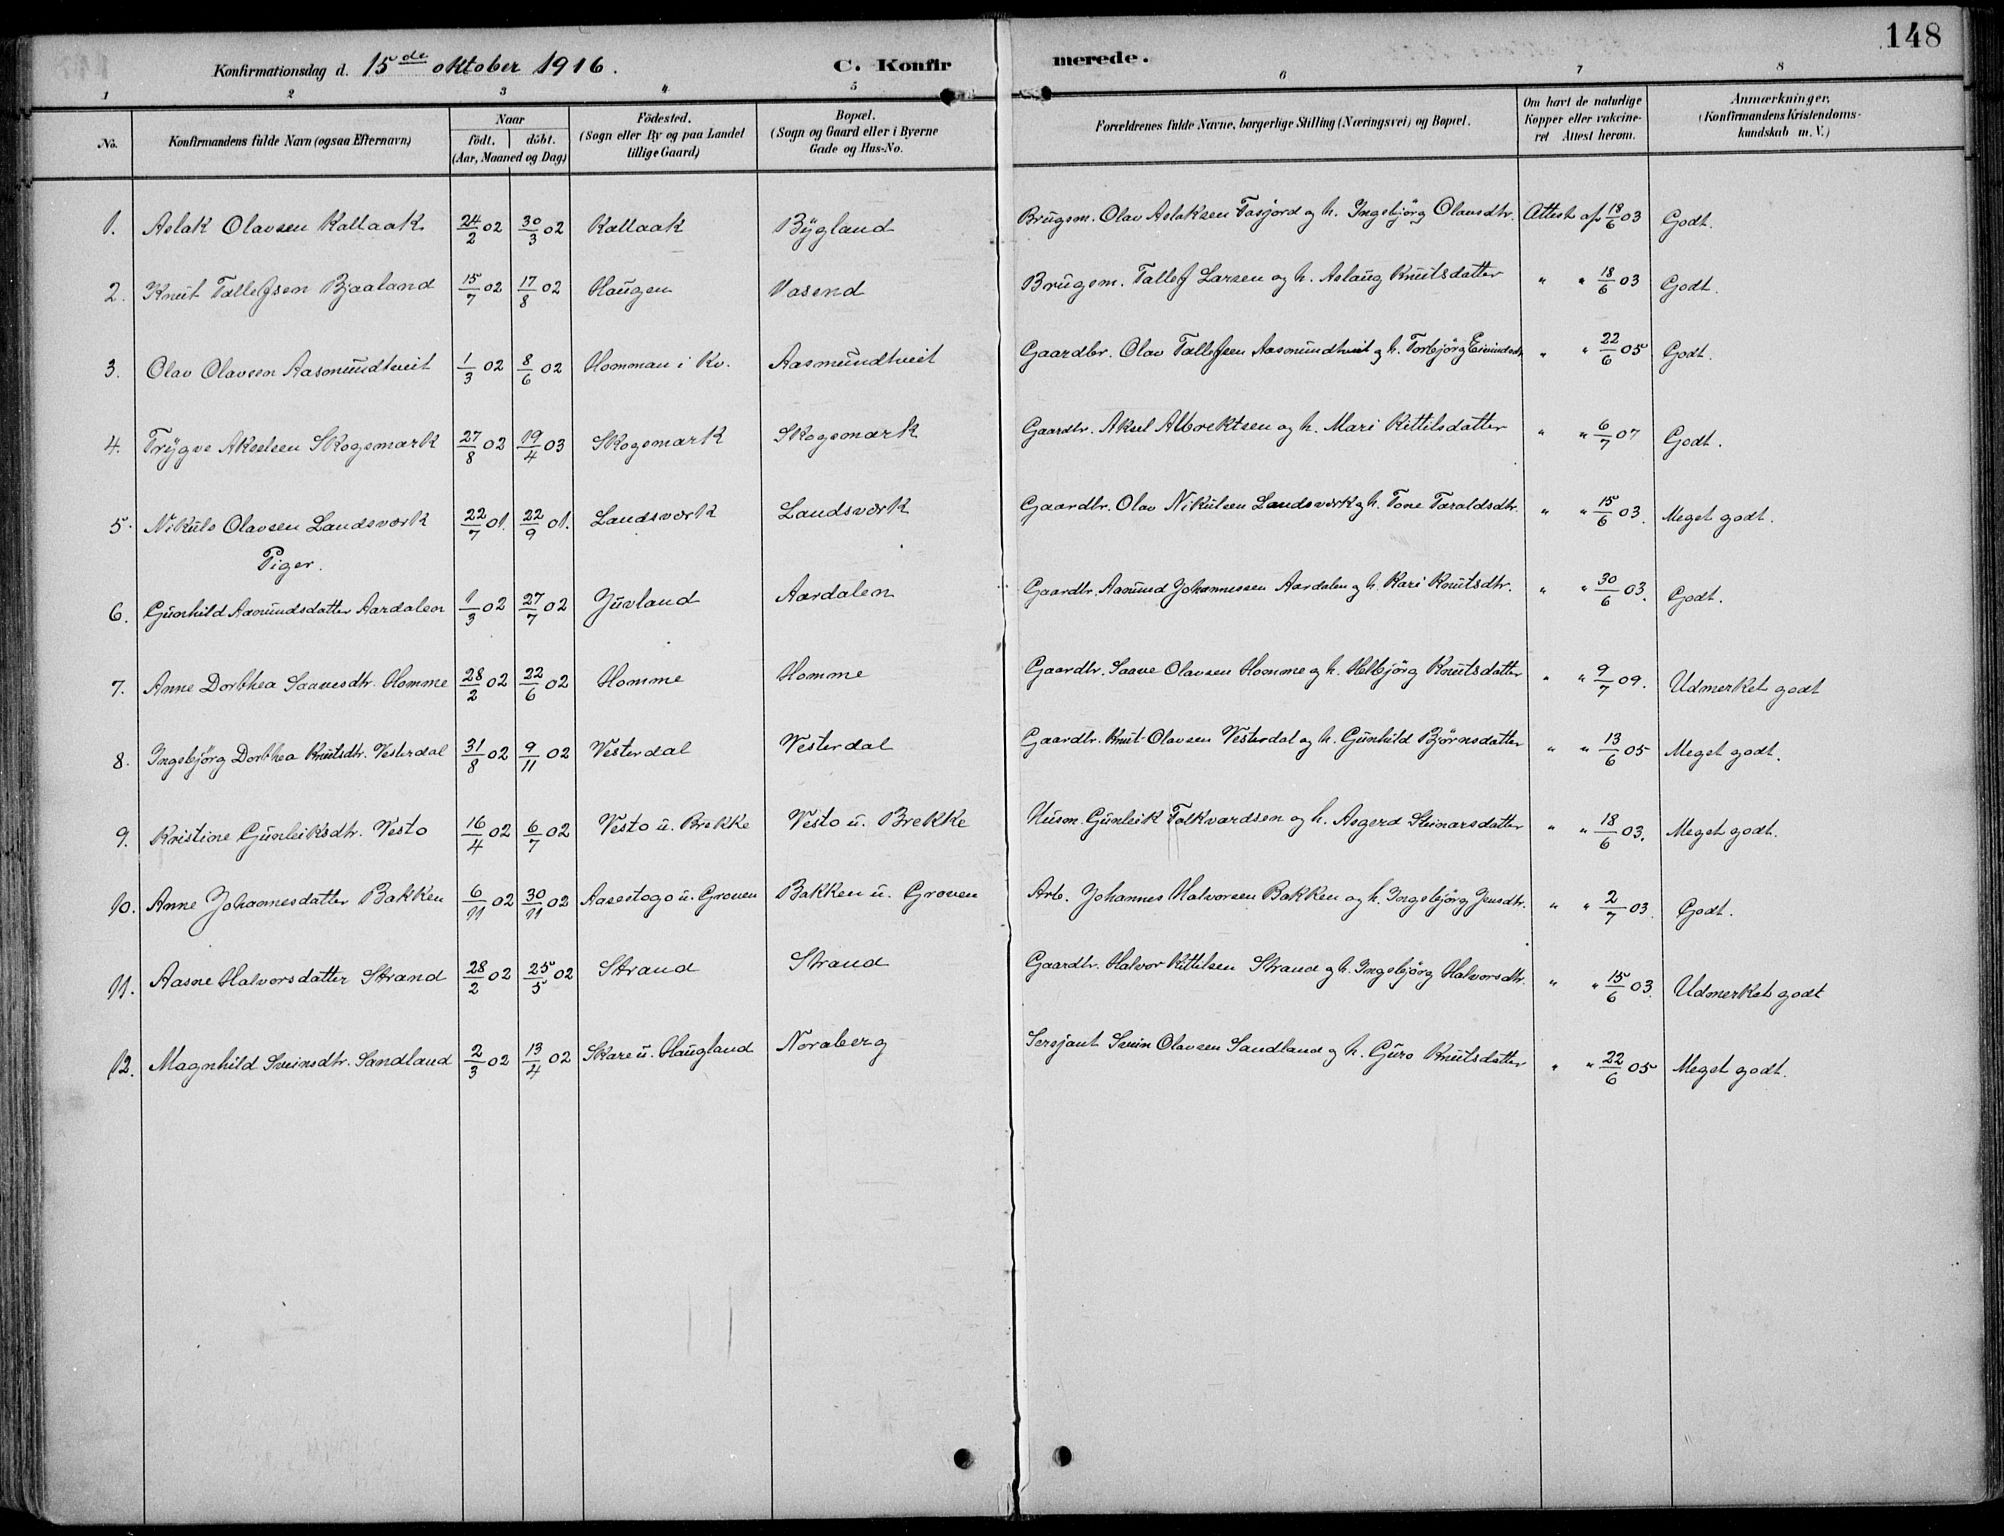 148
Konfirmationsdag d. 15de oktober 1916. C. Konfirmerede.
1 2 3 4 5 6 7 8
No. Konfirmandens fulde Navn (ogsaa Efternavn) Naar födt. döbt. (Aar, Maaned og Dag) Födested. (Sogn eller By og paa Landet tillige Gaard) Bopæl. (Sogn og Gaard eller i Byerne Gade og Hus-No. Forældrenes fulde Navne, borgerlige Stilling (Næringsvei) og Bopæl. Om havt de naturlige Kopper eller vakcineret Attest herom. Anmærkninger. (Konfirmandens Kristendomskundskab m. V.)
1. Aslak Olavsen Kallaak 24/2 02 30/3 02 Kallaak Bygland Brugsm. Olav Aslaksen Tasjord og h. Ingebjörg Olavsdtr. Attest af 18/6 03 Godt.
2. Knut Tallefsen Bjaaland 15/7 02 17/8 02 Haugen Vasend Brugsm. Tallef Larsen og h. Aslaug Knutsdatter " " 18/6 03 Godt.
3. Olav Olavsen Aasmundtveit 1/3 02 8/6 02 Homman i Kv. Aasmundtveit Gaardbr. Olav Tallefsen Aasmundtveit og h. Torbjörg Eivindsdtr. " " 22/6 05 Godt.
4. Trygve Akselsen Skogsmark 27/8 02 19/4 03 Skogsmark Skogsmark Gaardbr. Aksel Albrektsen og h. Mari Kittilsdatter " " 6/7 07 Godt.
5. Nikuls Olavsen Landsværk 22/7 01. 22/9 01. Landsværk Landsværk Gaardbr. Olav Nikulsen Landsværk og h. Tone Taraldsdtr. " " 15/6 03. Meget godt.
Piger.
6. Gunhild Aamundsdatter Aardalen 1/3 02 27/7 02 Juvland Aardalen Gaardbr. Aamund Johannessen Aardalen og h. Kari Knutsdtr. " " 30/6 03. Godt.
7. Anne Dorthea Saavesdtr. Homme 28/2 02 22/6 02 Homme Homme Gaardbr. Saave Olavsen Homme og h. Helbjörg Knutsdatter " " 9/7 09. Udmerket godt
8. Ingebjörg Dorthea Knutsdtr. Vesterdal 31/8 02 9/11 02 Vesterdal Vesterdal Gaardbr. Knut Olavsen Vesterdal og h. Gunhild Björnsdatter " " 13/6 05 Meget godt.
9. Kristine Gunleiksdtr. Vesto 16/4 02 6/7 02 Vesto u. Brekke Vesto u. Brekke Husm. Gunleik Folkvardsen og h. Asgerd Steinarsdatter " " 18/6 03. Meget godt.
10. Anne Johannesdatter Bakken 6/11 02 30/11 02 Aasestogo u. Groven Bakken u. Groven Arb. Johannes Halvorsen Bakken og h. Ingebjörg Jensdtr. " " 2/7 03. Godt.
11. Aasne Halvorsdatter Strand 28/2 02 25/5 02 Strand Strand Gaardbr. Halvor Kittilsen Strand og h. Ingebjörg Halvorsdtr. " " 15/6 03. Udmerket godt
12. Magnhild Sveinsdtr. Sandland 2/3 02 13/4 02 Skare u. Haugland Noraberg Sersjant Svein Olavsen Sandland og h. Guro Knutsdatter " " 22/6 05 Meget godt.